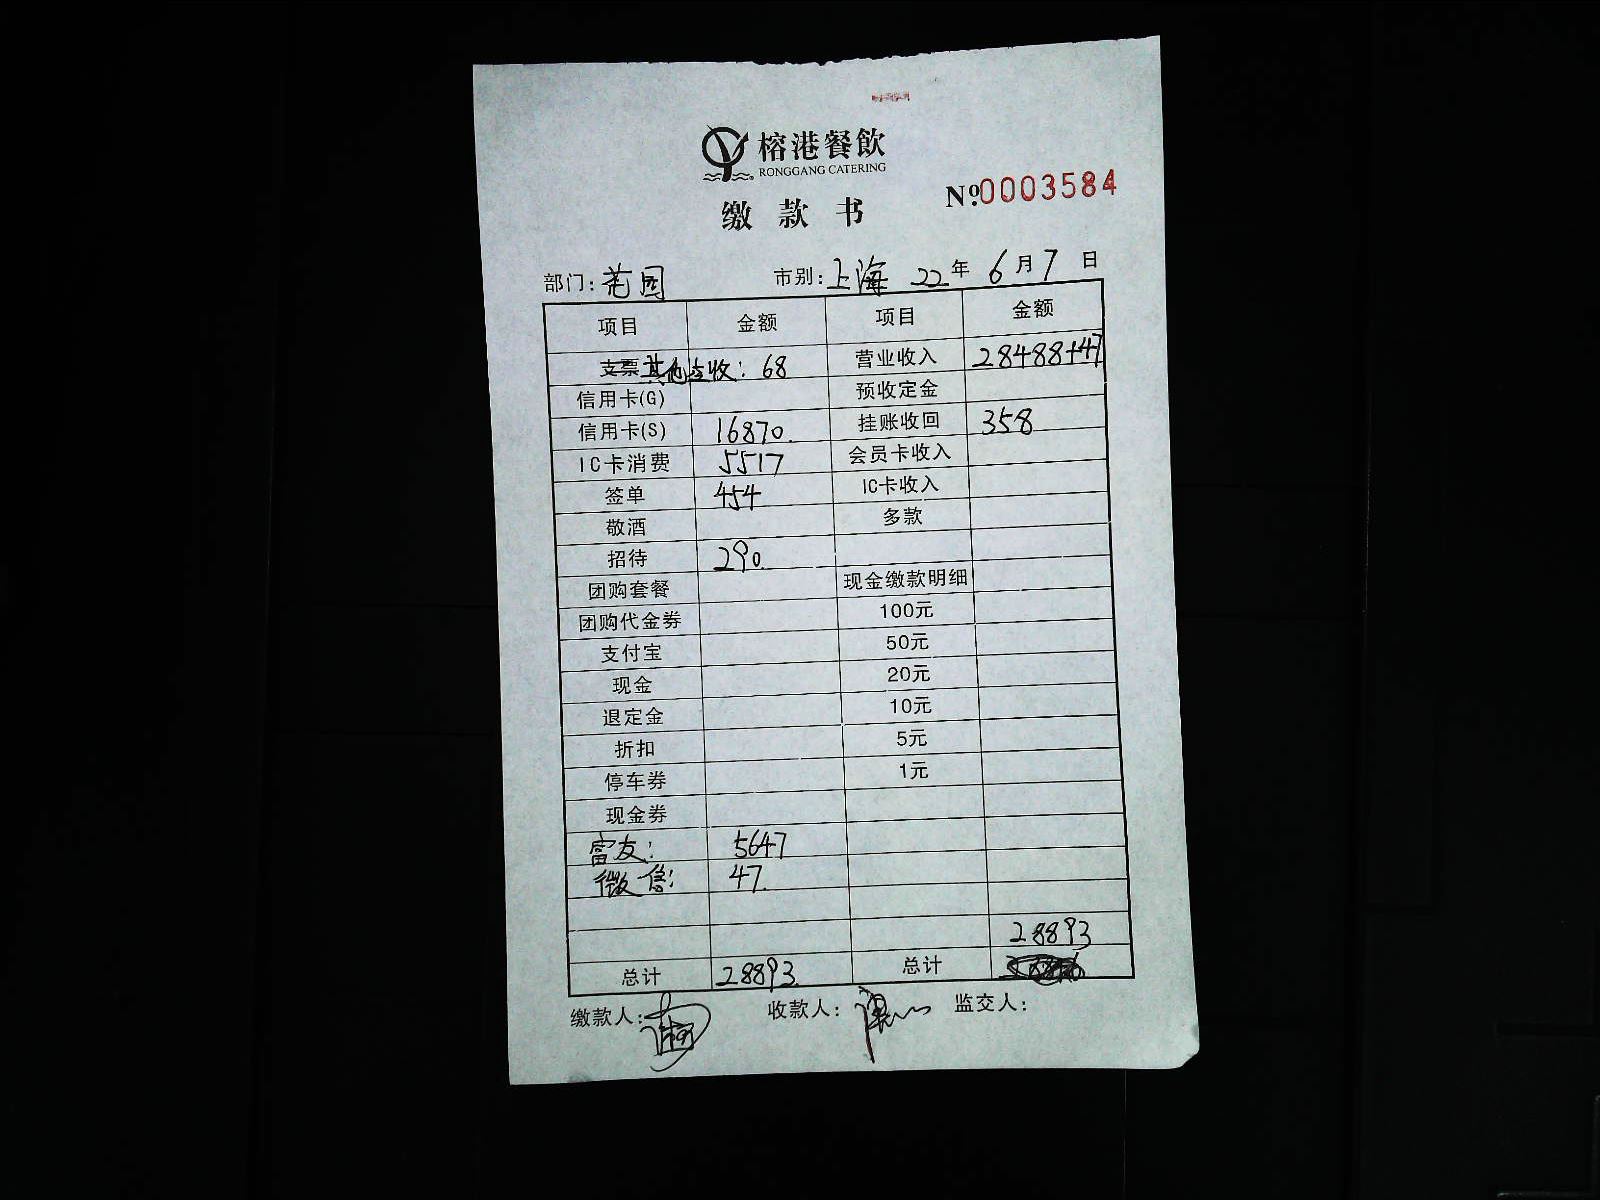 榕港餐飲
RONGGANG CATERING
№0003584
缴款书
部门: 花园 市别: 上海 22年6月7日
项目 金额 项目 金额
支票 其他应收: 68 营业收入 28488+47
信用卡(G) 预收定金
信用卡(S) 16870. 挂账收回 358
IC卡消费 5517 会员卡收入
签单 454 IC卡收入
敬酒 多款
招待 290.
团购套餐 现金缴款明细
团购代金券 100元
支付宝 50元
现金 20元
退定金 10元
折扣 5元
停车券 1元
现金券
富友: 5647
微信: 47.
28893
总计 28893. 总计
缴款人: 收款人: 监交人: